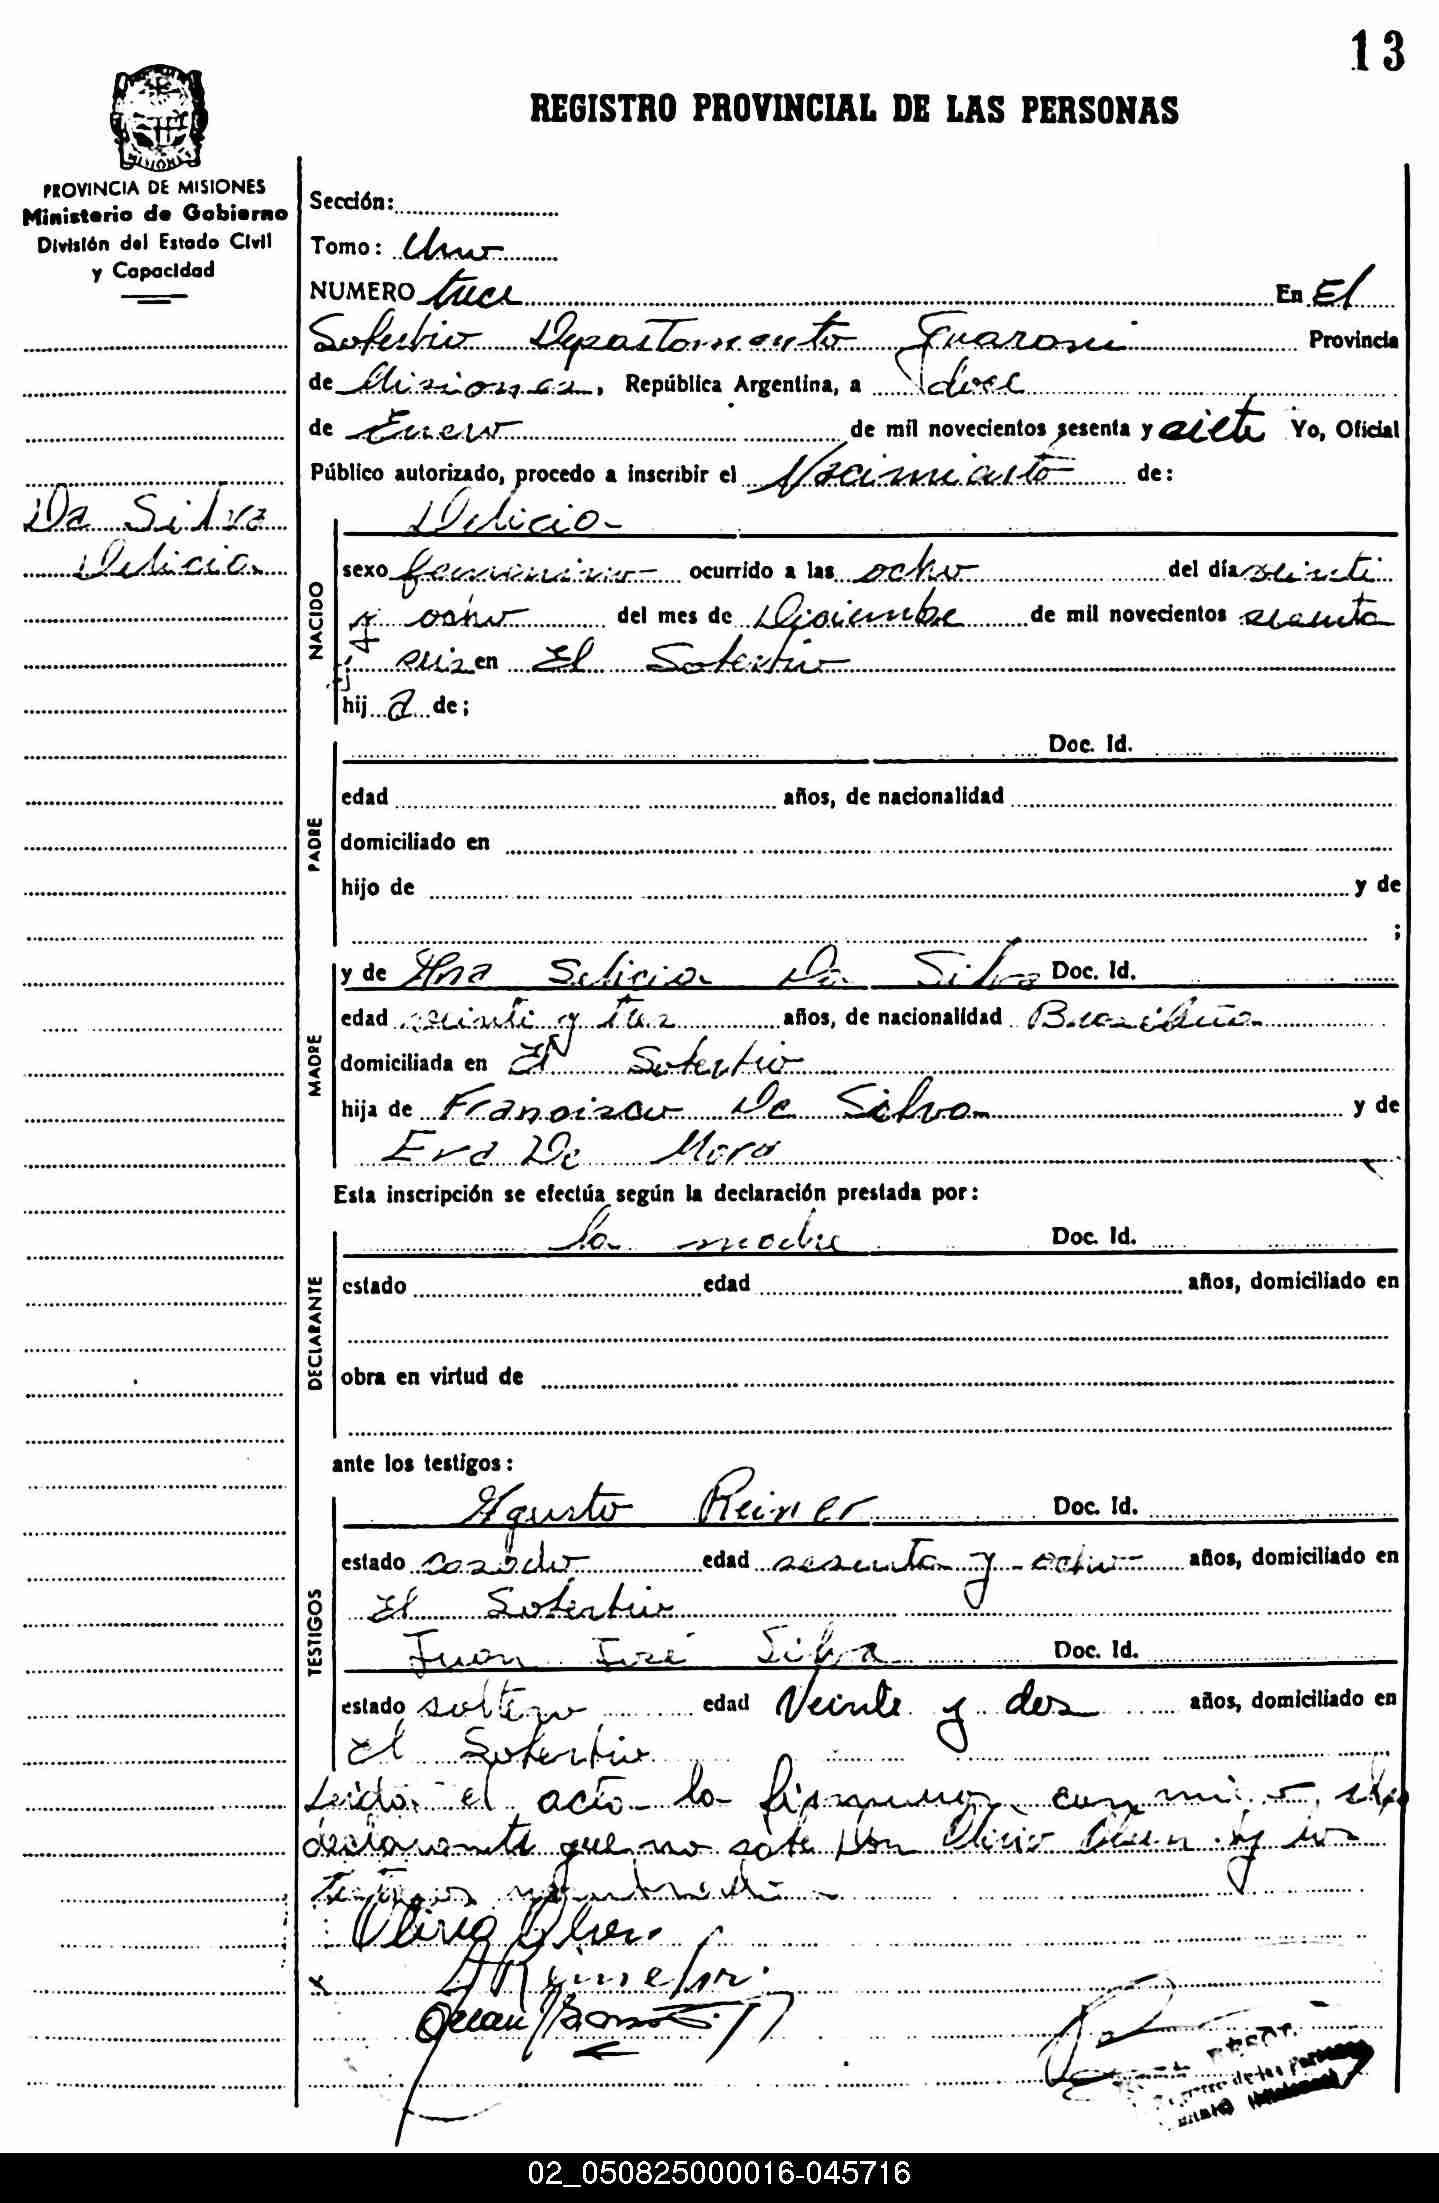 13
REGISTRO PROVINCIAL DE LAS PERSONAS
MISIONES
PROVINCIA DE MISIONES
Ministerio de Gobierno
División del Estado Civil
y Capacidad
Da Silva
Delicia
Sección:
Tomo: Uno
NUMERO trece En El
Soberbio Departamento Guarani Provincia
de Misiones, República Argentina, a doce
de Enero de mil novecientos sesenta y siete Yo, Oficial
Público autorizado, procedo a inscribir el Nacimiento de:
NACIDO
Delicia
sexo femenino ocurrido a las ocho del día veinti
y ocho del mes de Diciembre de mil novecientos sesenta
y seis en El Soberbio
hij a de;
PADRE
Doc. Id.
edad años, de nacionalidad
domiciliado en
hijo de y de
;
MADRE
y de Ana Delicia Da Silva Doc. Id.
edad veinti y tres años, de nacionalidad Brasileña
domiciliada en El Soberbio
hija de Francisco Da Silva y de
Eva De Mora
Esta inscripción se efectúa según la declaración prestada por:
DECLARANTE
la madre Doc. Id.
estado edad años, domiciliado en
obra en virtud de
ante los testigos:
TESTIGOS
Agusto Reiner Doc. Id.
estado casado edad sesenta y ocho años, domiciliado en
El Soberbio
Juan José Silva Doc. Id.
estado soltero edad Veinte y dos años, domiciliado en
El Soberbio
Leida el acta la firman con migo
declarante que no sabe Don Olirio y los
testigos
02_050825000016-045716